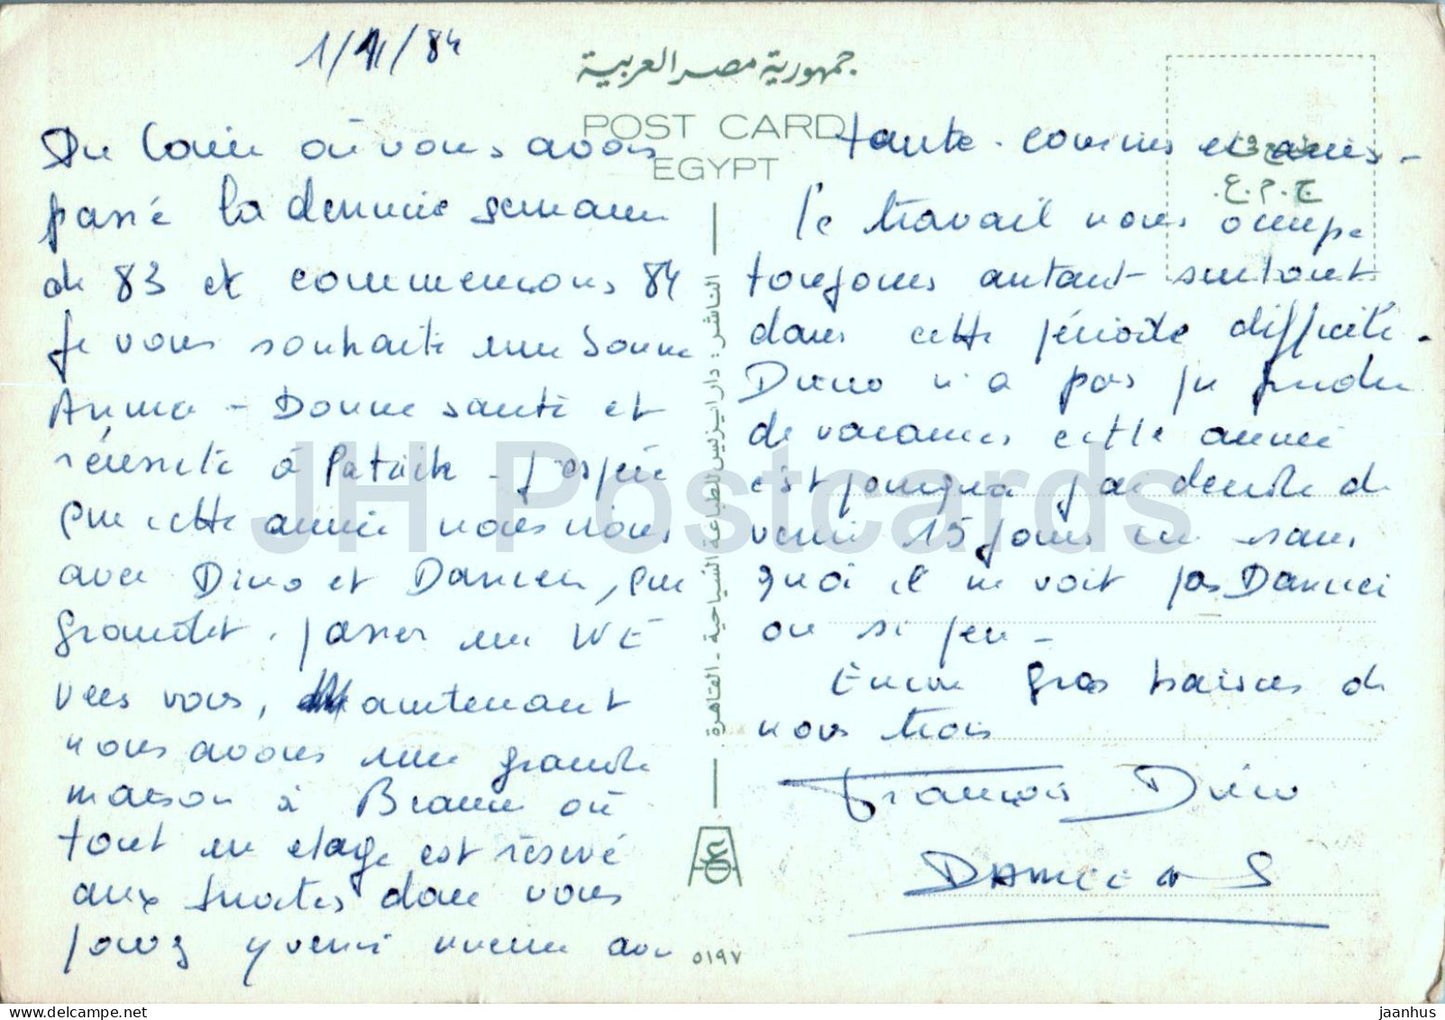 1/1/84
جمهورية مصر العربية
POST CARD
EGYPT
Du Caire où nous avons
passé la dernière semaine
de 83 et commençons 84
Je vous souhaite une bonne
Année - Bonne santé et
réussite à Patrick - J'espère
que cette année nous irons
avec Dino et Damien, qui
grandit, passer un WE
vers vous, maintenant
nous avons une grande
maison à Braine où
tout un étage est réservé
aux invités donc vous
pouvez y venir même avec
tante - cousins et amis -
Le travail nous occupe
toujours autant surtout
dans cette période difficile.
Dino n'a pas pu prendre
de vacances cette année
c'est pourquoi j'ai décidé de
venir 15 jours ici sans
quoi il ne voit pas Damien
ou si peu -
Encore gros baisers de
nous trois
François Dino
DAMIEN
ج.م.ع.
الناشر: دار ايزيس للطباعة السياحية - القاهرة
٥١٩٧
JH Postcards
www.delcampe.net
jaanhus